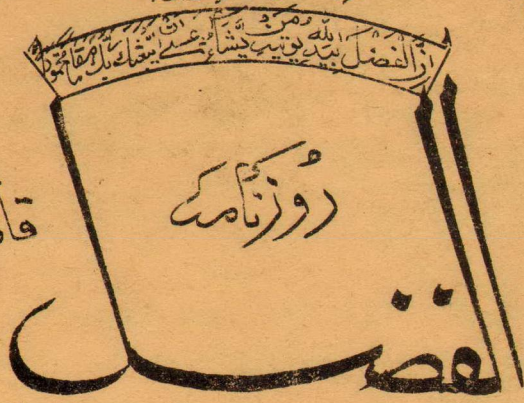 ان الفضل بيد الله يؤتيه من يشاء عسىٰ ان يبعثك ربك مقاما محمودا
روزنامہ
الفضل